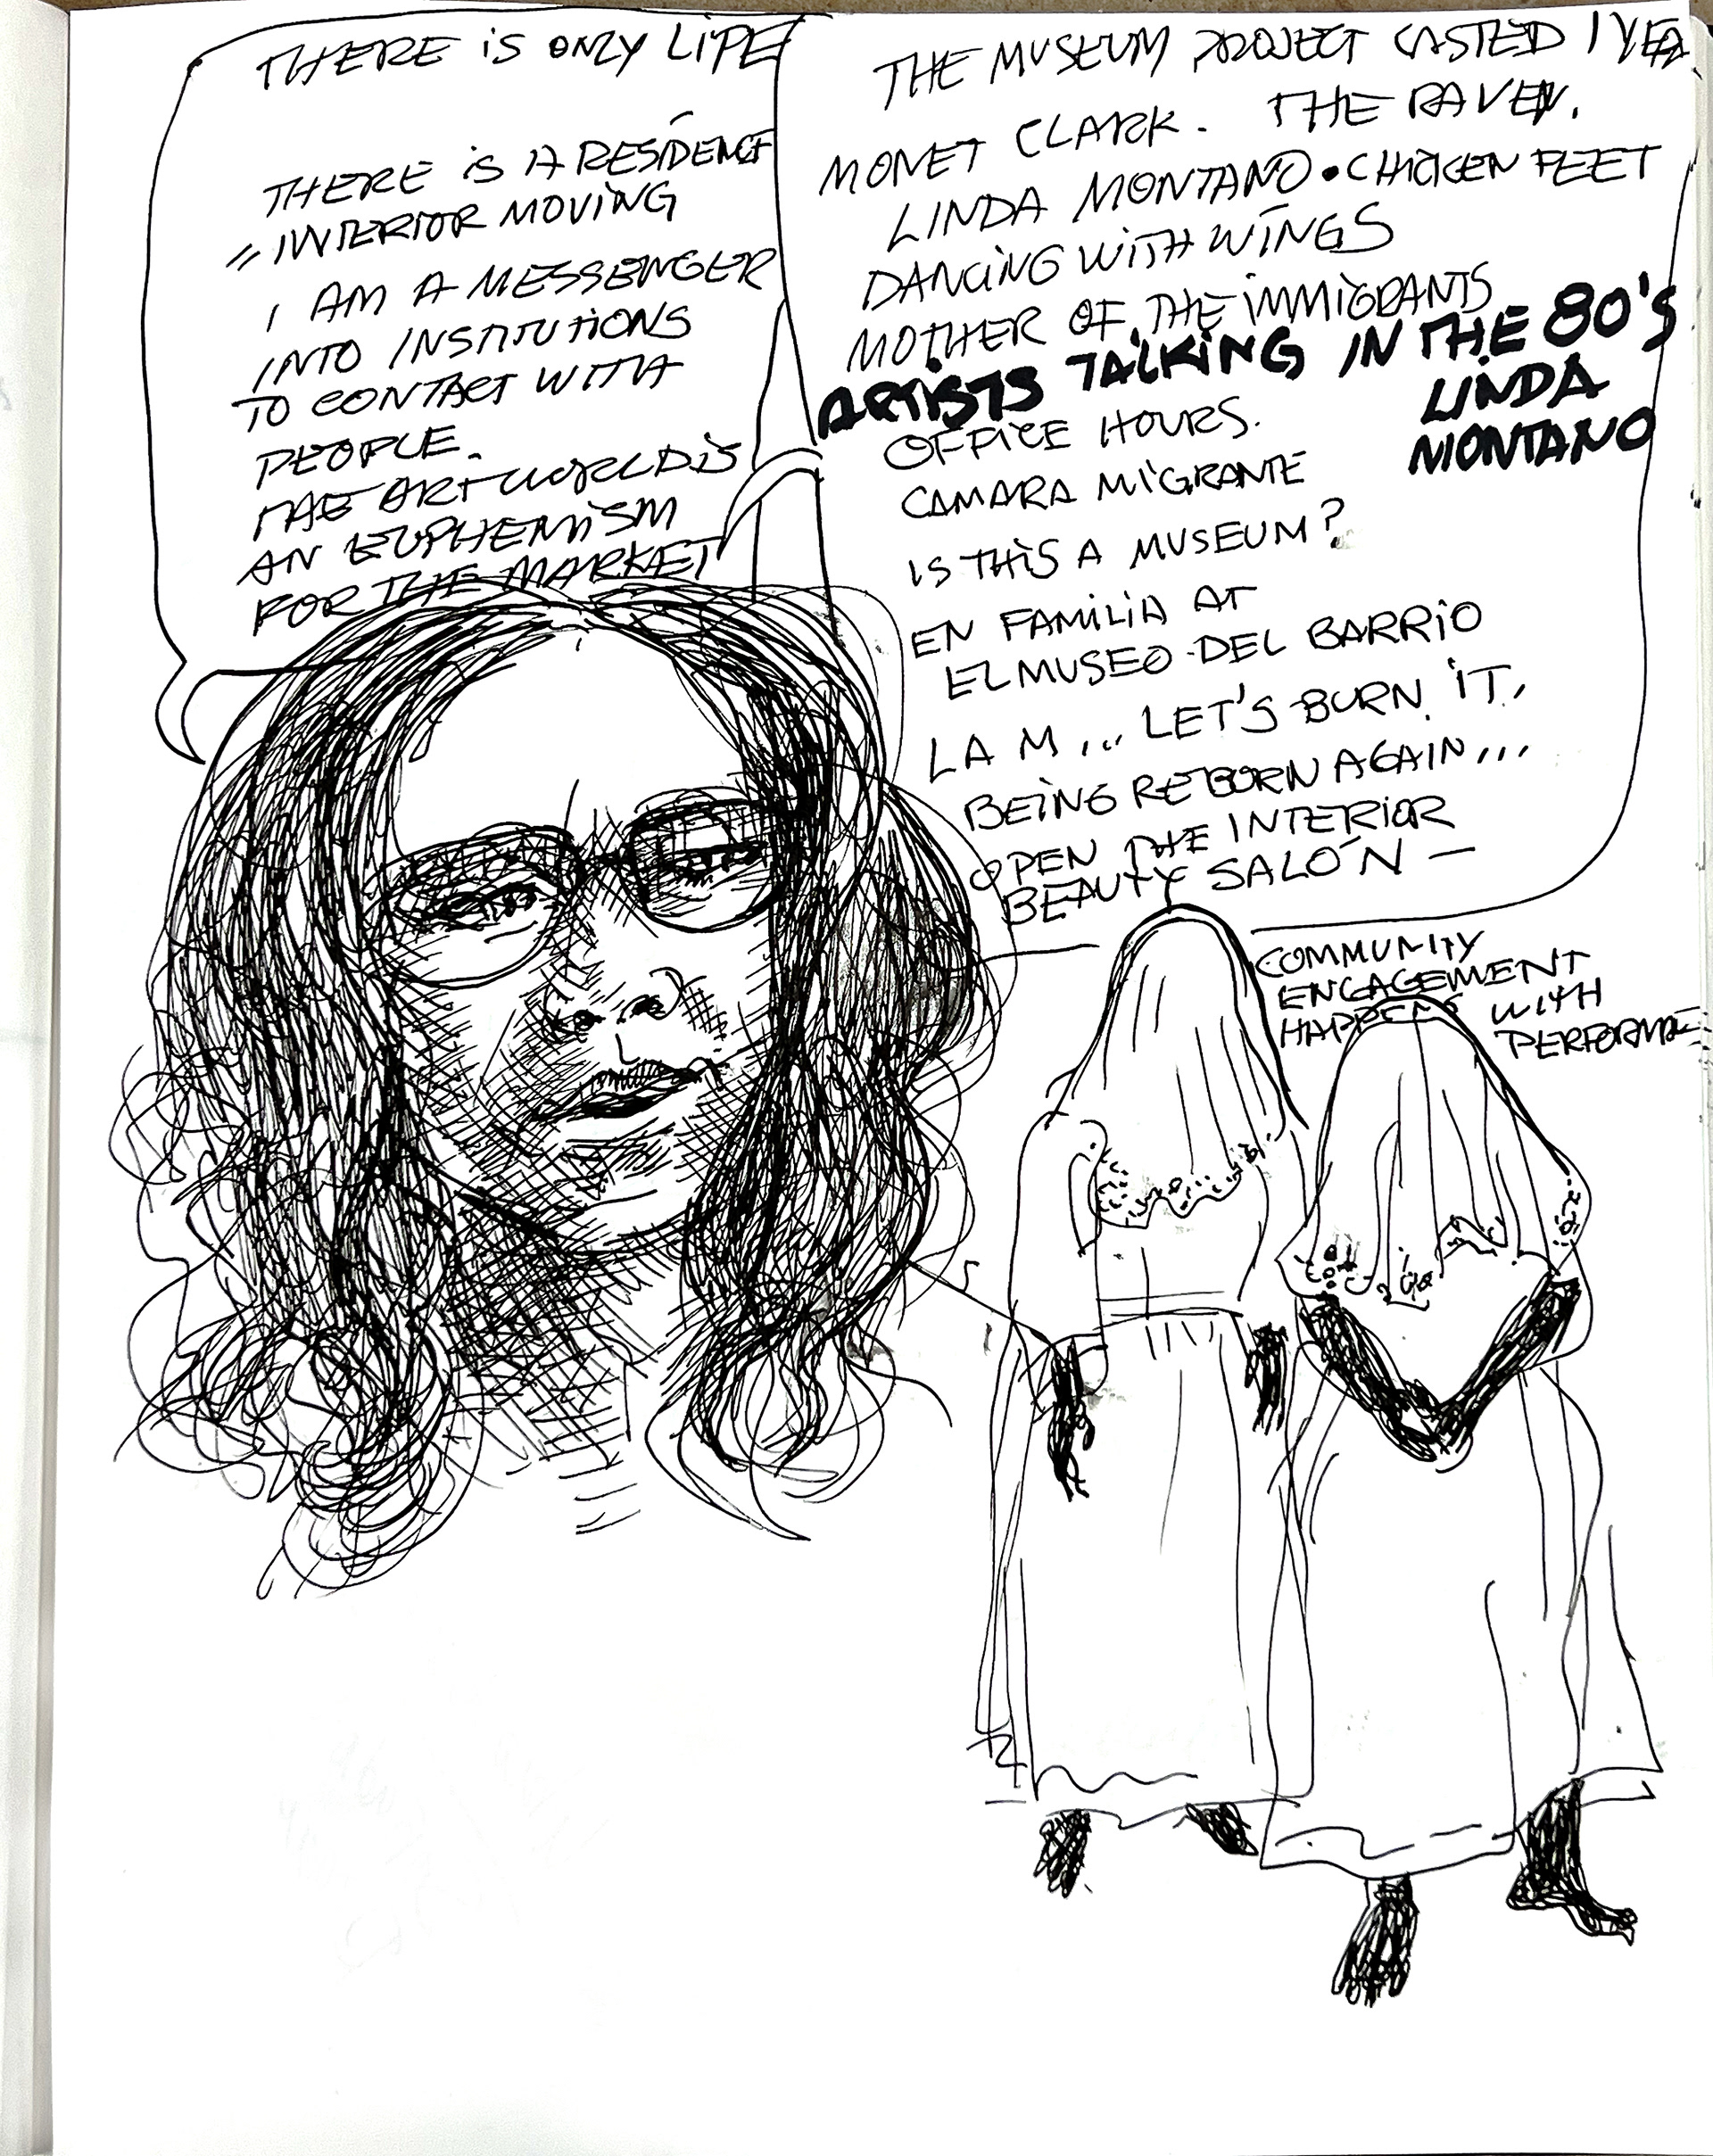 THERE IS ONLY LIFE
THERE IS A RESIDENCE
" INTERIOR MOVING
I AM A MESSENGER
INTO INSTITUTIONS
TO CONTACT WITH
PEOPLE.
THE ART WORLD IS
AN EUPHEMISM
FOR THE MARKET
THE MUSEUM PROJECT LASTED 1 YEAR
MONET CLARK. THE RAVEN.
LINDA MONTANO • CHICKEN FEET
DANCING WITH WINGS
MOTHER OF THE IMMIGRANTS
ARTISTS TALKING IN THE 80'S
LINDA
MONTANO
OFFICE HOURS.
CAMARA MIGRANTE
IS THIS A MUSEUM?
EN FAMILIA AT
EL MUSEO DEL BARRIO
LA M... LET'S BURN IT,
BEING REBORN AGAIN...
OPEN THE INTERIOR
BEAUTY SALÓN —
COMMUNITY
ENGAGEMENT
HAPPENS WITH